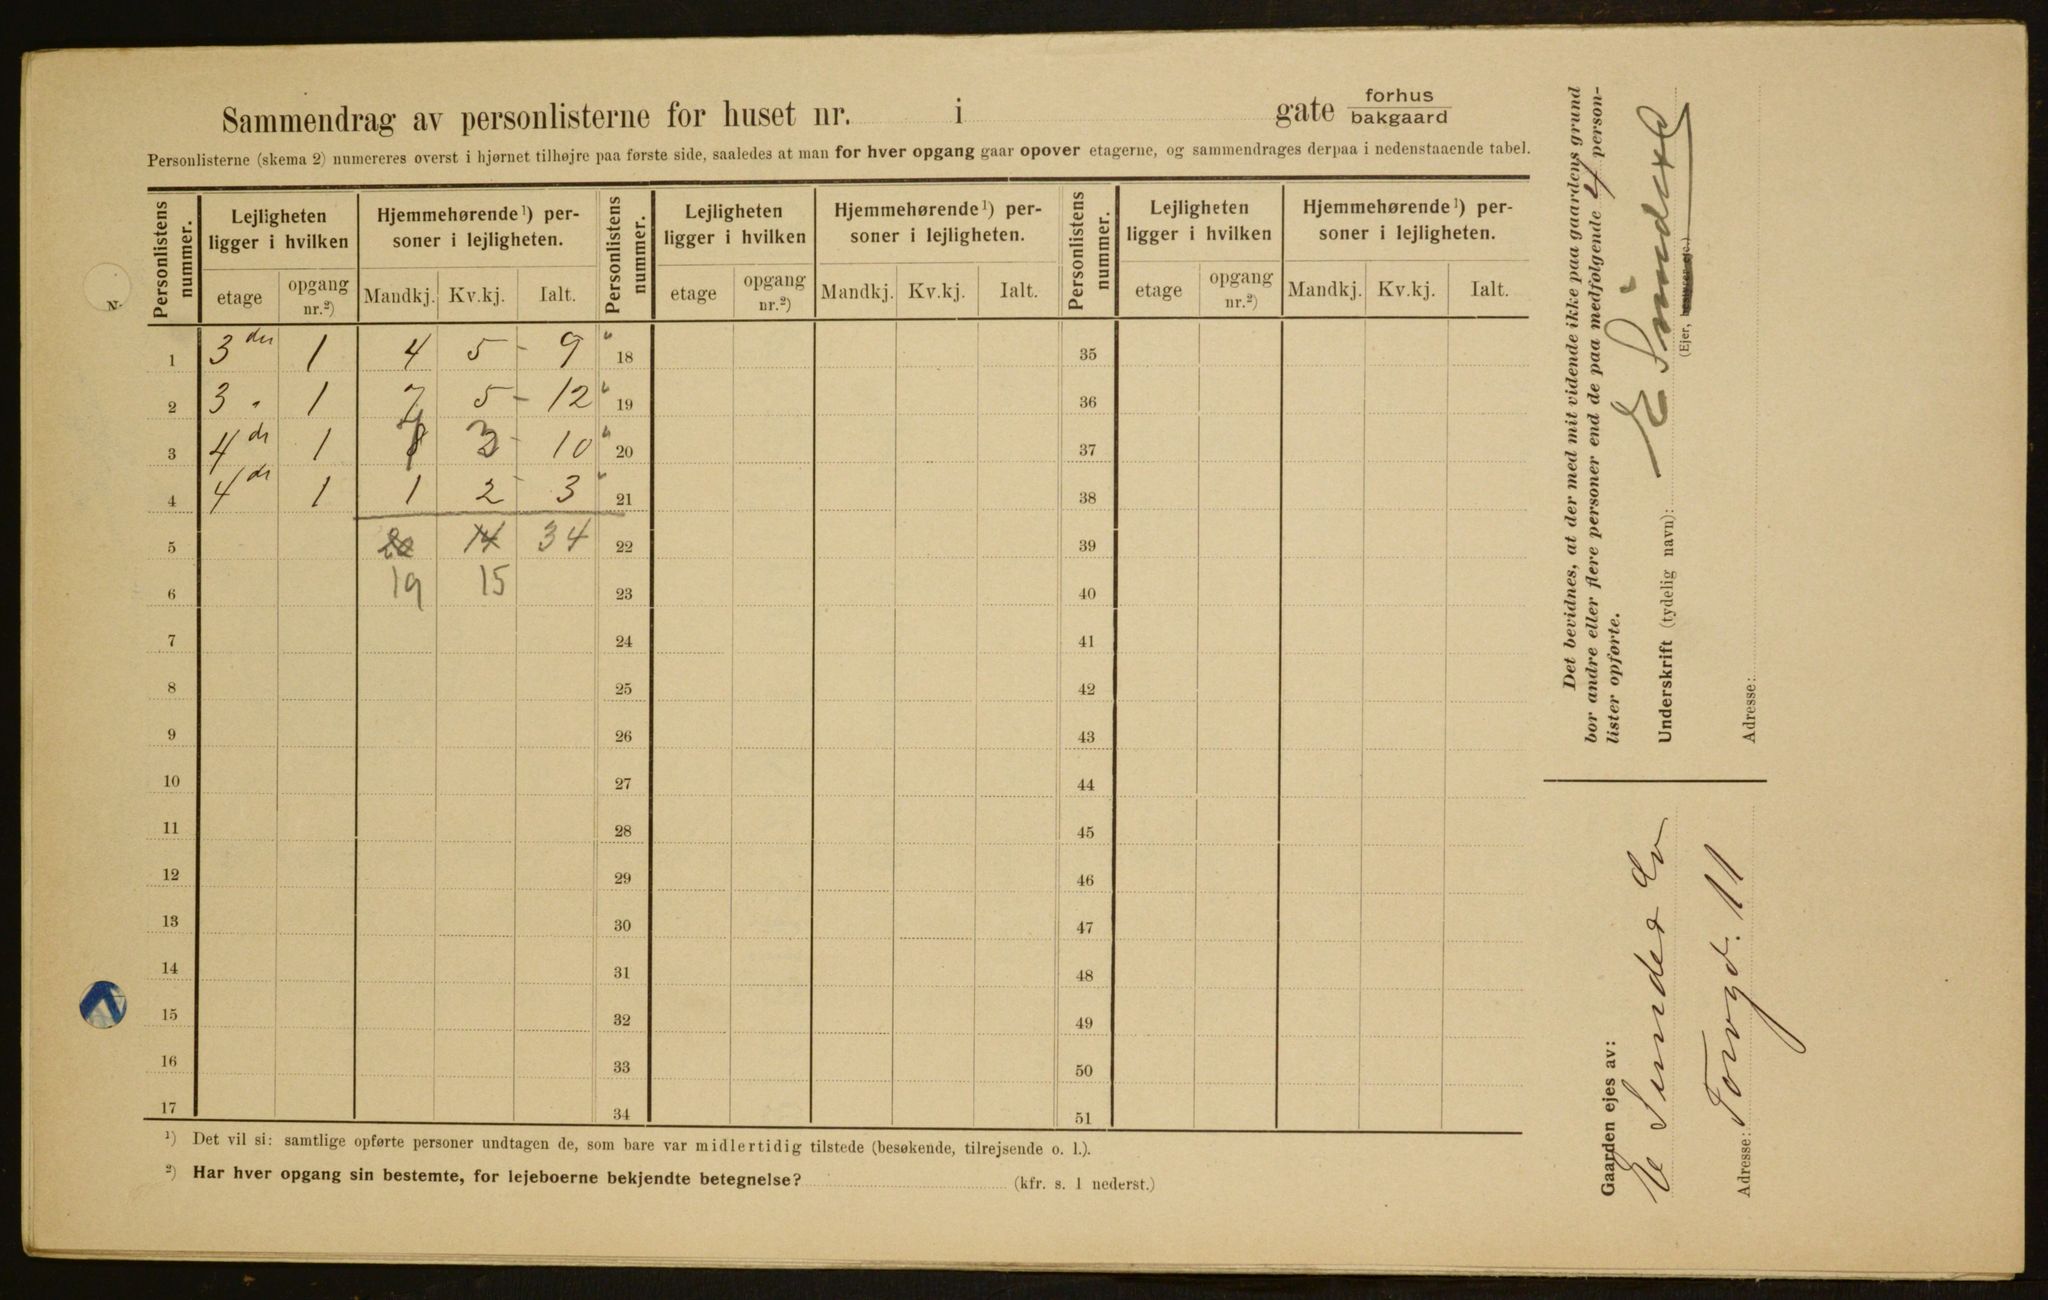 Sammendrag av personlisterne for huset nr. i gate forhus bakgaard
Personlisterne (skema 2) numereres øverst i hjørnet tilhøjre paa første side, saaledes at man for hver opgang gaar opover etagerne, og sammendrages derpaa i nedenstaaende tabel.
Personlistens nummer. Lejligheten ligger i hvilken Hjemmehørende¹) personer i lejligheten. Personlistens nummer. Lejligheten ligger i hvilken Hjemmehørende¹) personer i lejligheten. Personlistens nummer. Lejligheten ligger i hvilken Hjemmehørende¹) personer i lejligheten.
etage opgang nr.²) Mandkj. Kv.kj. Ialt. etage opgang nr.²) Mandkj. Kv.kj. Ialt. etage opgang nr.²) Mandkj. Kv.kj. Ialt.
1 3 1 4 5 - 9 18 35
2 3 " 1 7 5 - 12 19 36
3 4 1 7 3 - 10 20 37
4 4 1 1 2 3 21 38
5 14 34 22 39
6 19 15 23 40
7 24 41
8 25 42
9 26 43
10 27 44
11 28 45
12 29 46
13 30 47
14 31 48
15 32 49
16 33 50
17 34 51
¹) Det vil si: samtlige opførte personer undtagen de, som bare var midlertidig tilstede (besøkende, tilrejsende o. l.).
²) Har hver opgang sin bestemte, for lejeboerne bekjendte betegnelse? (kfr. s. 1 nederst.)
Det bevidnes, at der med mit vidende ikke paa gaardens grund
bor andre eller flere personer end de paa medfølgende 4 person-
lister opførte.
Underskrift (tydelig navn): E Sundt
(Ejer,
Adresse:
Gaarden ejes av:
E Sundt & Co
Adresse: Torvgt. 11